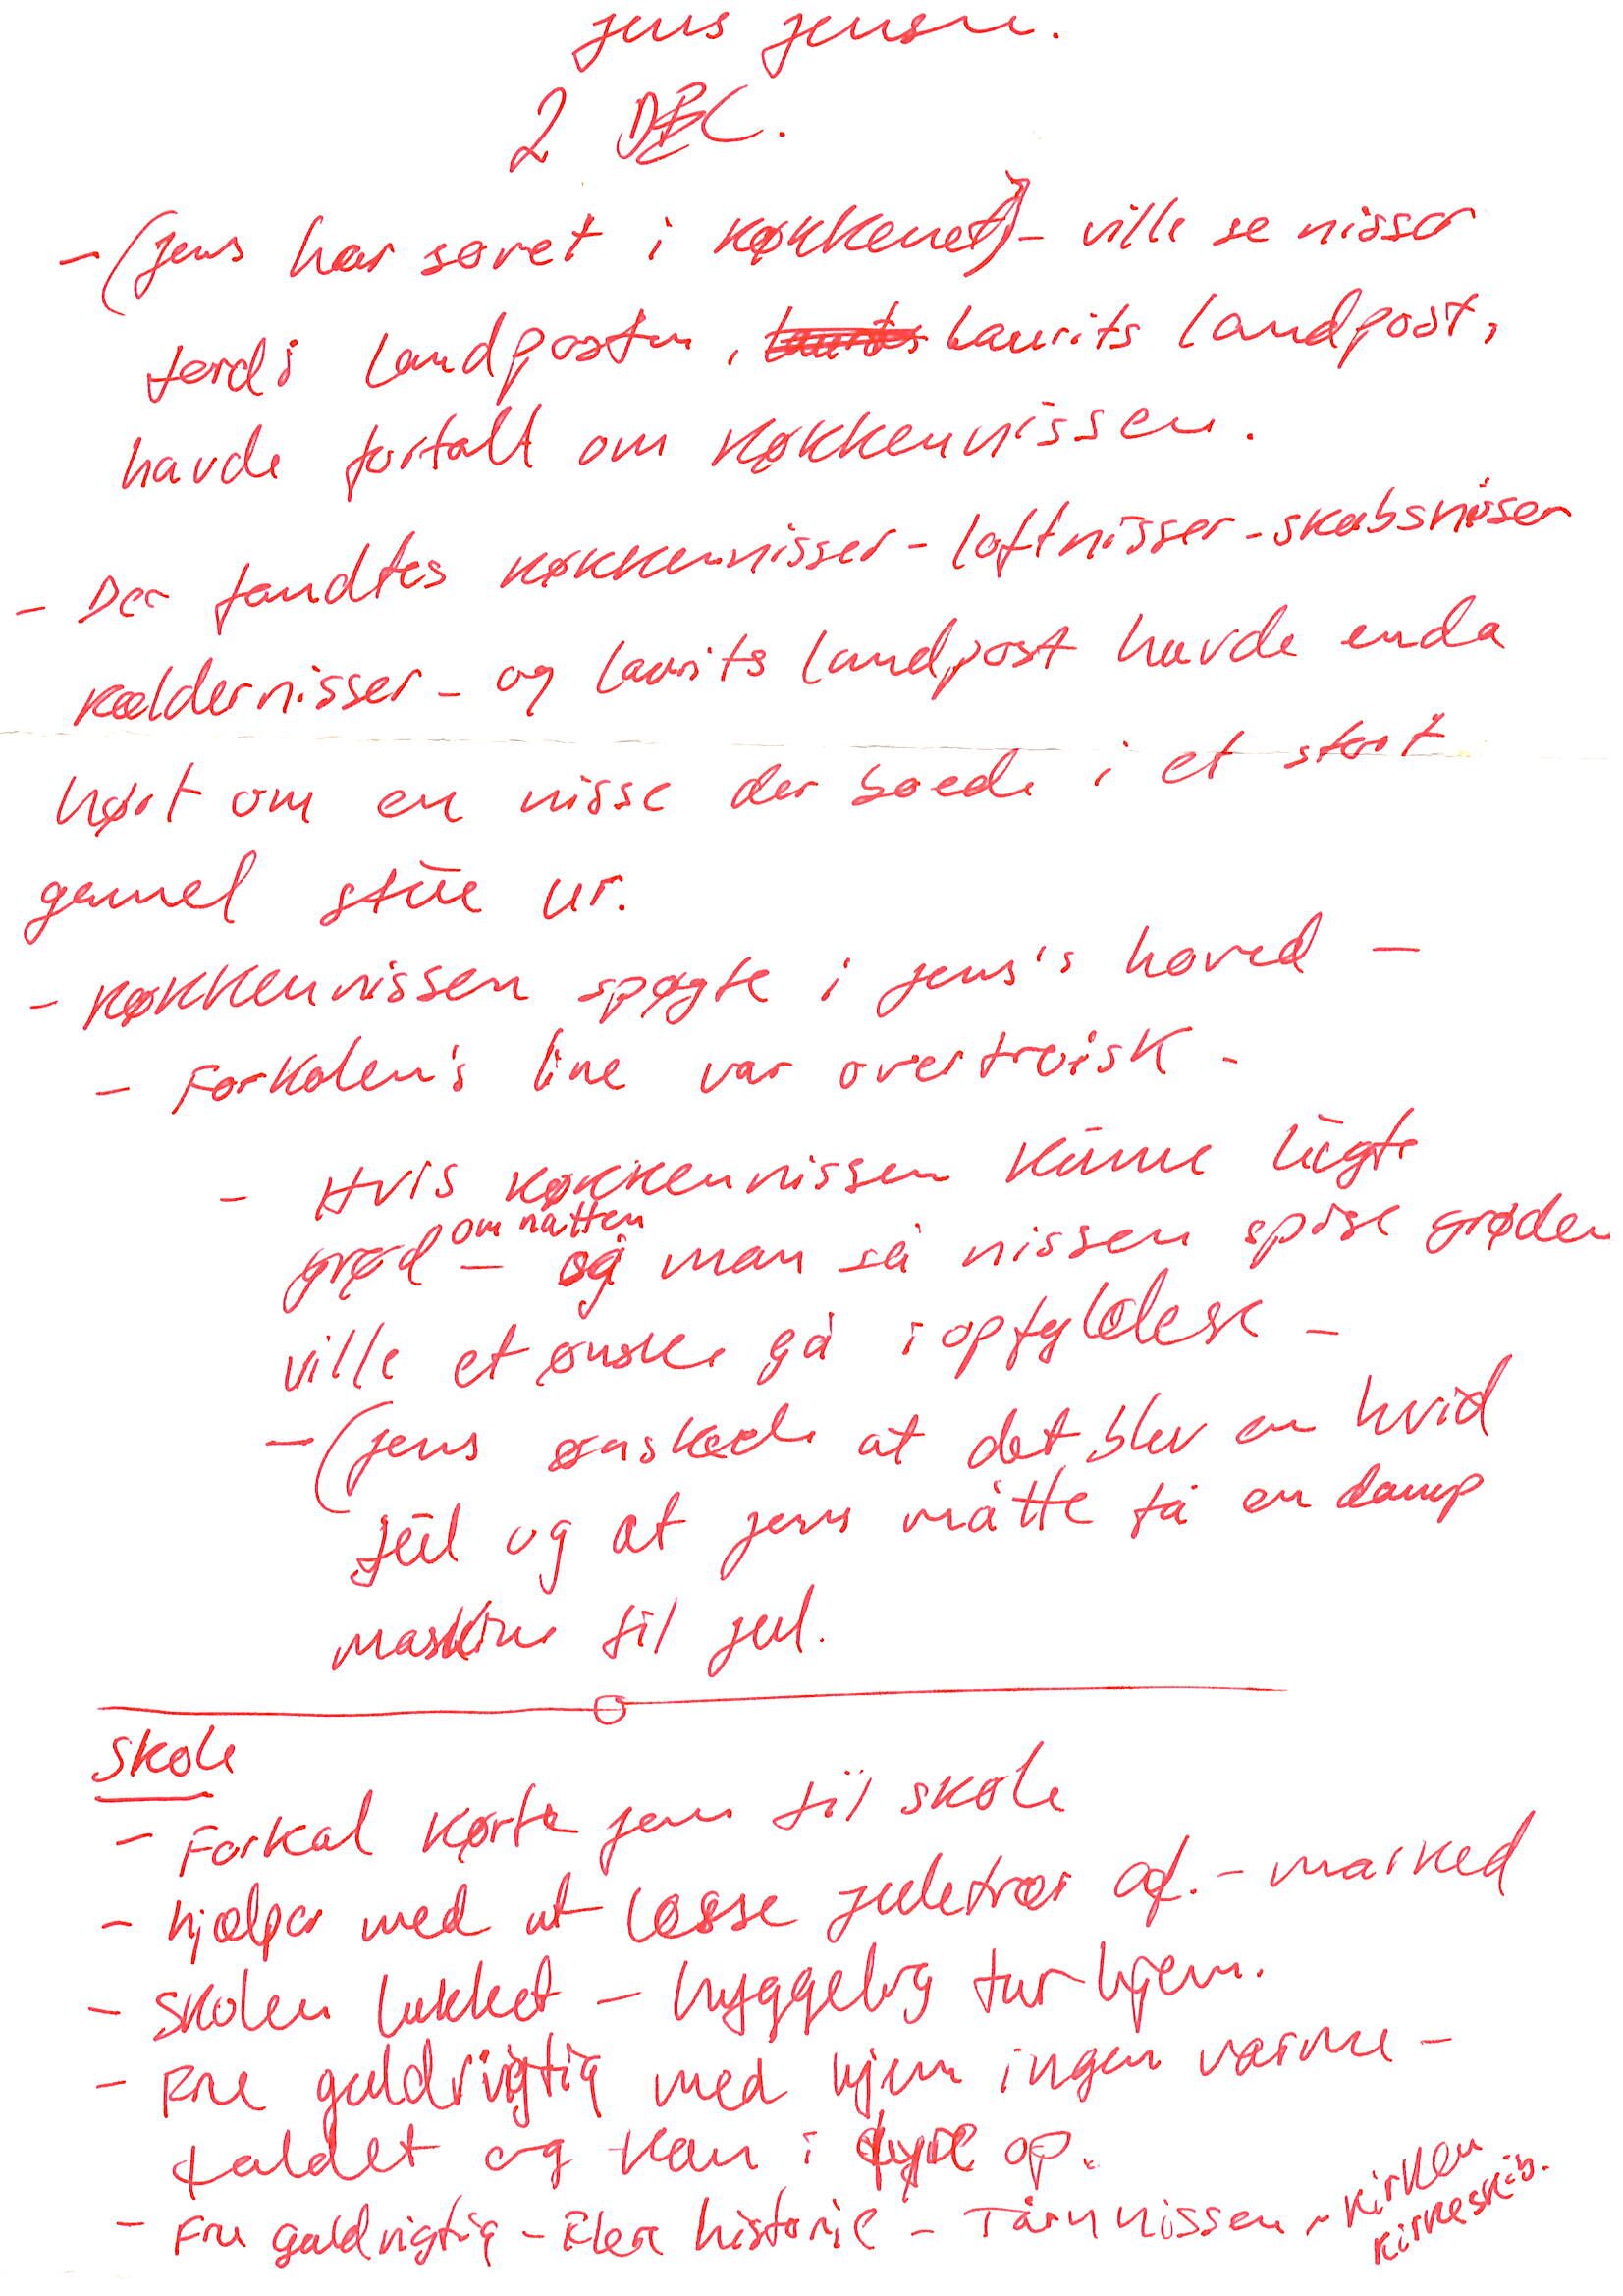 jens jensen.
2 DEC.
- (jens har sovet i køkkenet) - ville se nisser
fordi landposten, Laurits landpost,
havde fortalt om køkkennissen.
- Der fandtes køkkennisser - loftnisser - skabsnisser
kældernisser - og laurits landpost havde enda
hørt om en nisse der boede i et stort
gamel stue ur.
- køkkennissen spøgte i jens's hoved -
- Forkalen's line var overtroisk -
- Hvis køkkennissen kunne lugte
om natten
grød - og man så nissen spise grøden
ville et ønske gå i opfyldelse -
- (jens ønskede at det blev en hvid
jul og at jens måtte få en damp
maskine til jul.
Skole
- Forkal kørte jens til skole
- hjælper med at læsse juletræer af. - marked
- skolen lukket - hyggelig tur hjem.
- Fru guldrigtig med hjem ingen varme -
faldet og kan i op.
- Fru guldrigtig - Flere historie - Tårnnissen - kirken
kirkeskib.